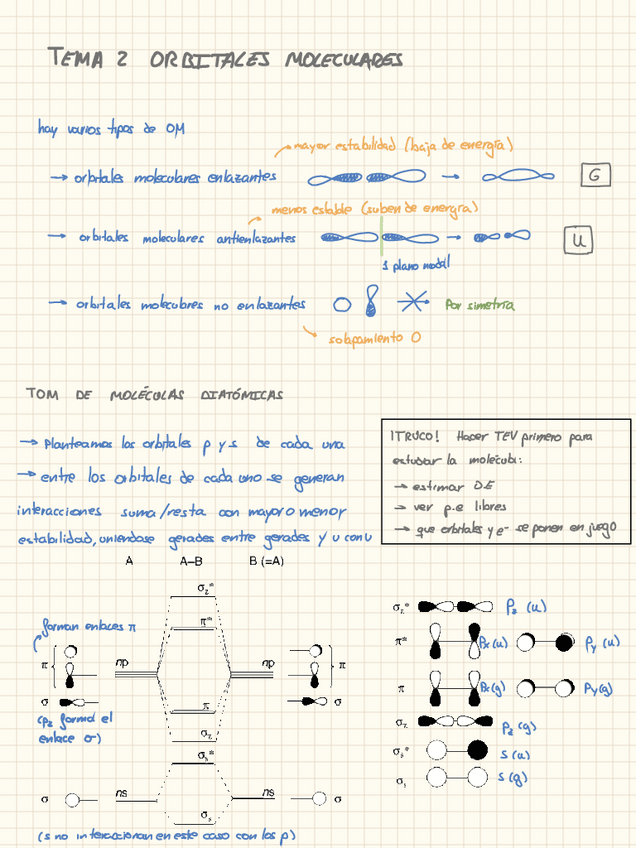 TEMA 2 ORBITALES MOLECULARES
hay varios tipos de OM
mayor estabilidad (baja de energía)
→ orbitales moleculares enlazantes → G
menos estable (suben de energía)
→ orbitales moleculares antienlazantes → U
1 plano nodal
→ orbitales moleculares no enlazantes Por simetría
solapamiento 0
TOM DE MOLÉCULAS DIATÓMICAS
→ Planteamos los orbitales p y s de cada una
→ entre los orbitales de cada uno se generan
interacciones suma/resta con mayor o menor
estabilidad, uniendose gerades entre gerades y u con u
¡TRUCO! Hacer TEV primero para
estudiar la molécula:
→ estimar D.E
→ ver p.e libres
→ que orbitales y e- se ponen en juego
A A–B B (=A)
σz*
forman enlaces π
π*
π np np π
σ σ
(pz forma el
enlace σ)
π
σz
σs*
σ ns ns σ
σs
(s no interaccionan en este caso con los p)
σz* Pz (u)
π* Px (u) Py (u)
π Px (g) Py (g)
σz Pz (g)
σs* S (u)
σs S (g)